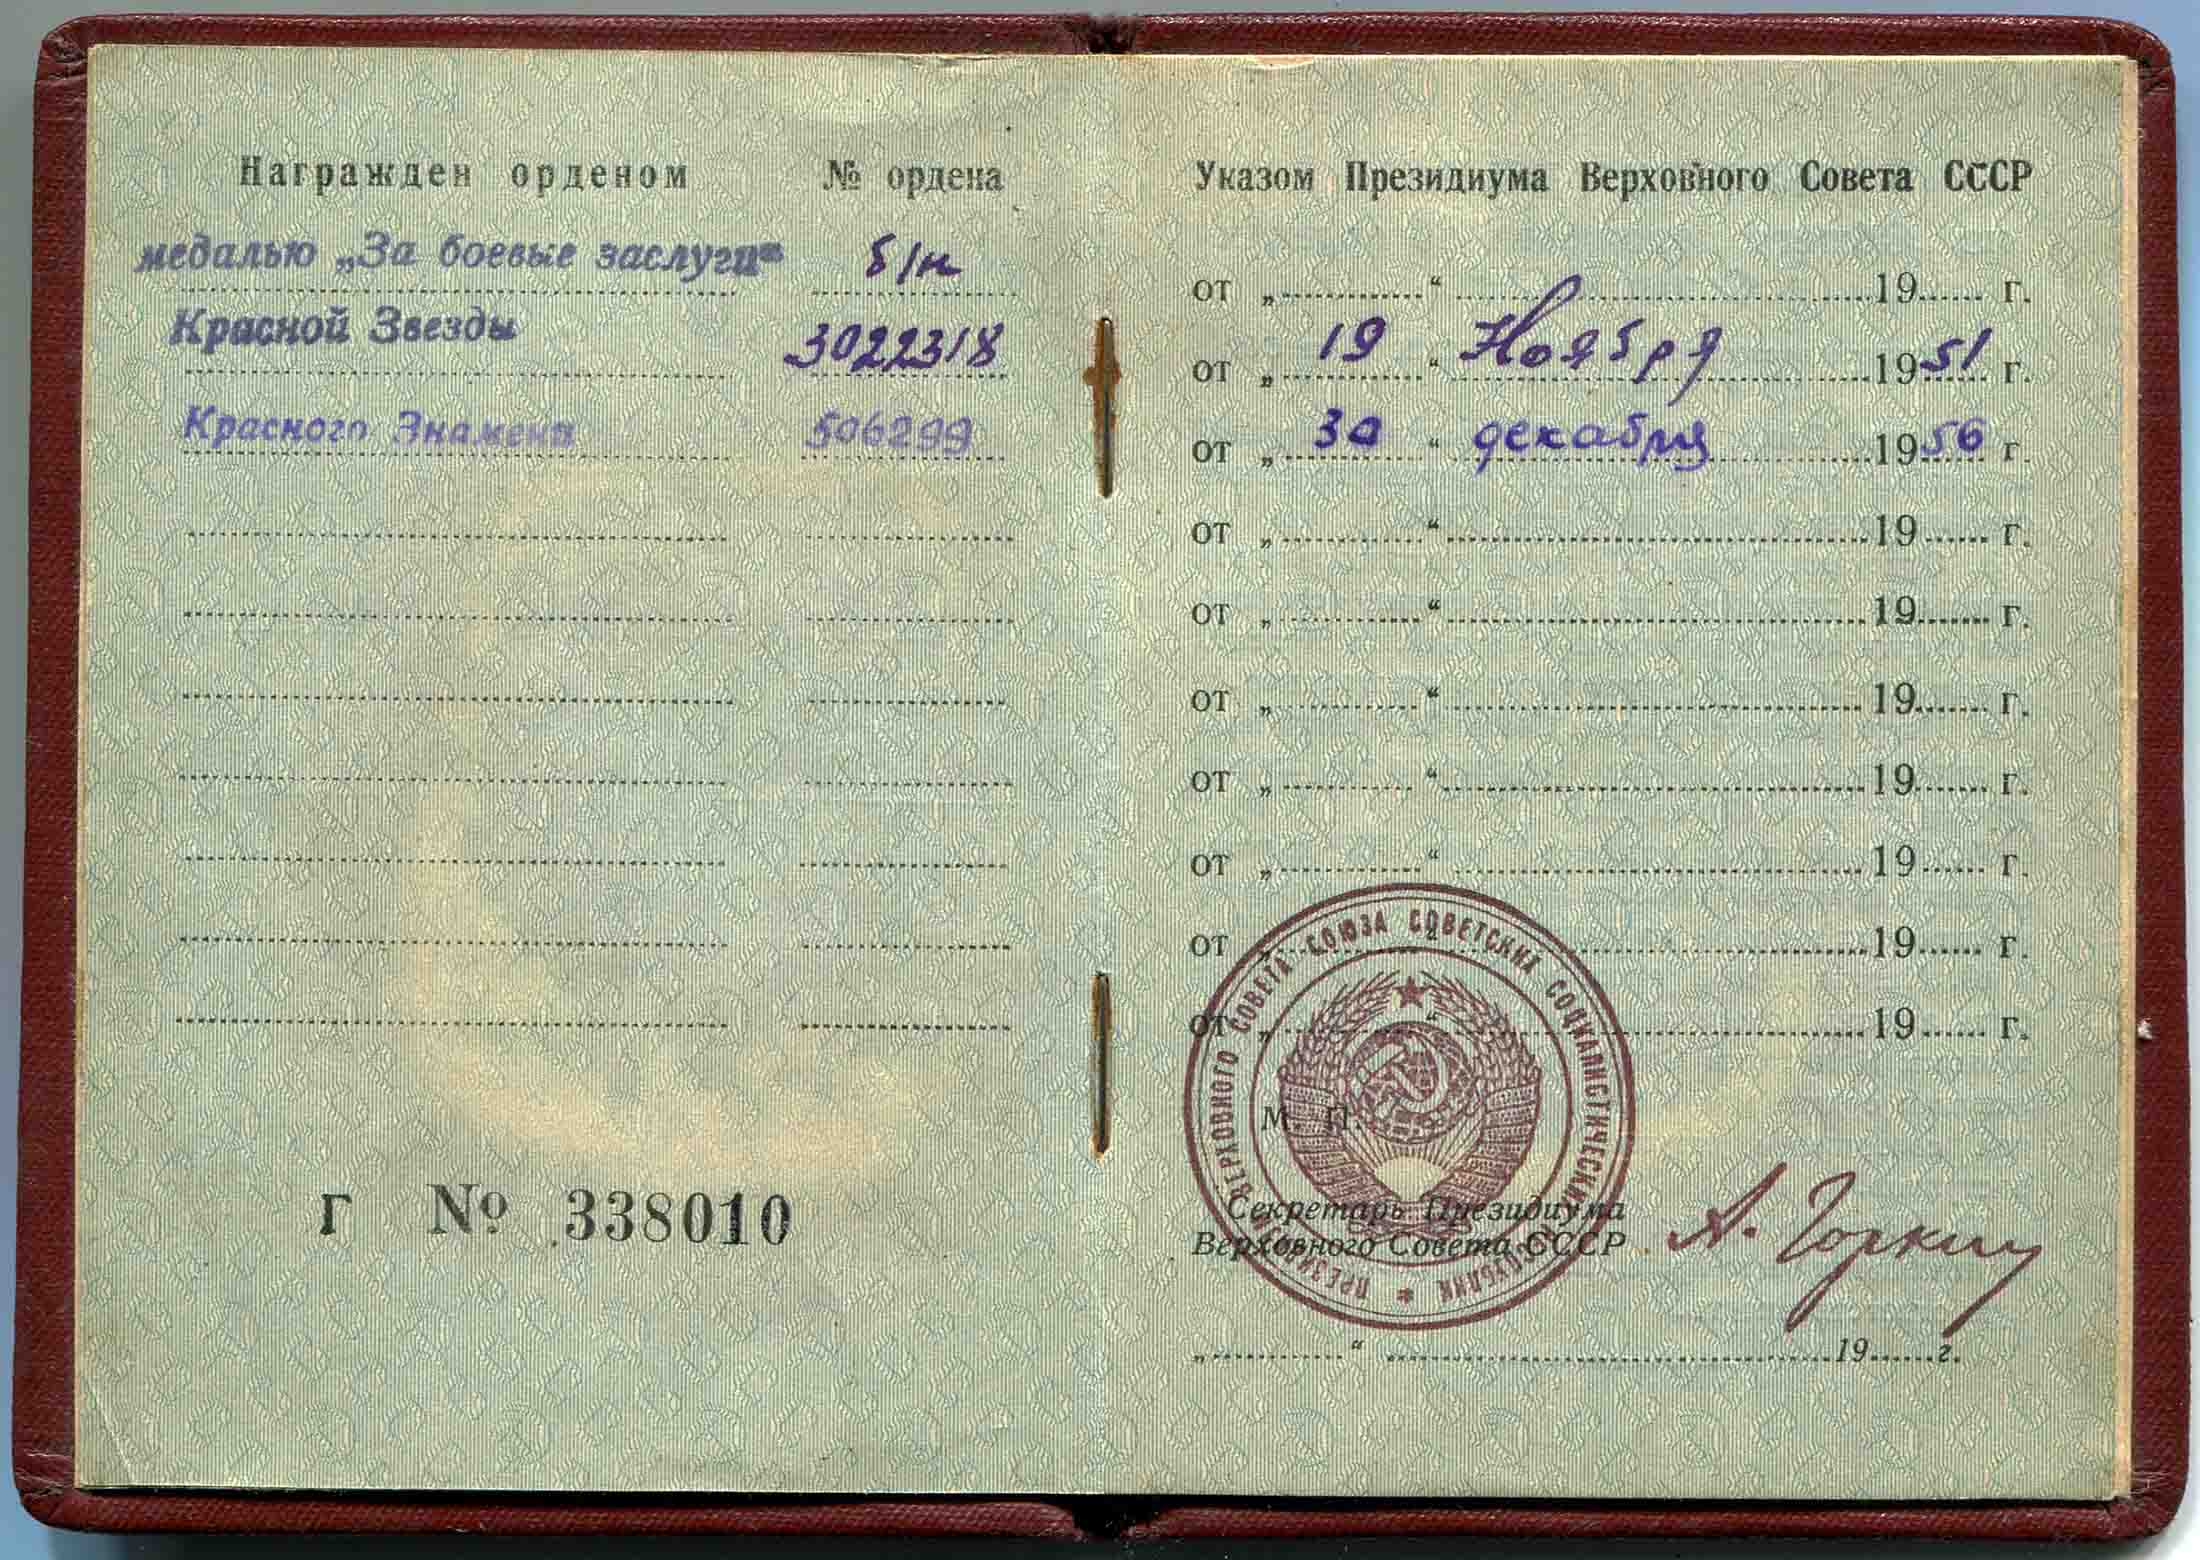 Награжден орденом № ордена
медалью „За боевые заслуги“ б/н
Красной Звезды 3022318
Красного Знамени 506299
Г № 338010
Указом Президиума Верховного Совета СССР
от „ “ 19 г.
от „ 19 “ Ноября 1951 г.
от „ 30 “ декабря 1956 г.
от „ “ 19 г.
от „ “ 19 г.
от „ “ 19 г.
от „ “ 19 г.
от „ “ 19 г.
от „ “ 19 г.
от „ “ 19 г.
М. П.
ПРЕЗИДИУМ ВЕРХОВНОГО СОВЕТА СОЮЗА СОВЕТСКИХ СОЦИАЛИСТИЧЕСКИХ РЕСПУБЛИК *
Секретарь Президиума
Верховного Совета СССР А. Горкин
„ “ 19 г.